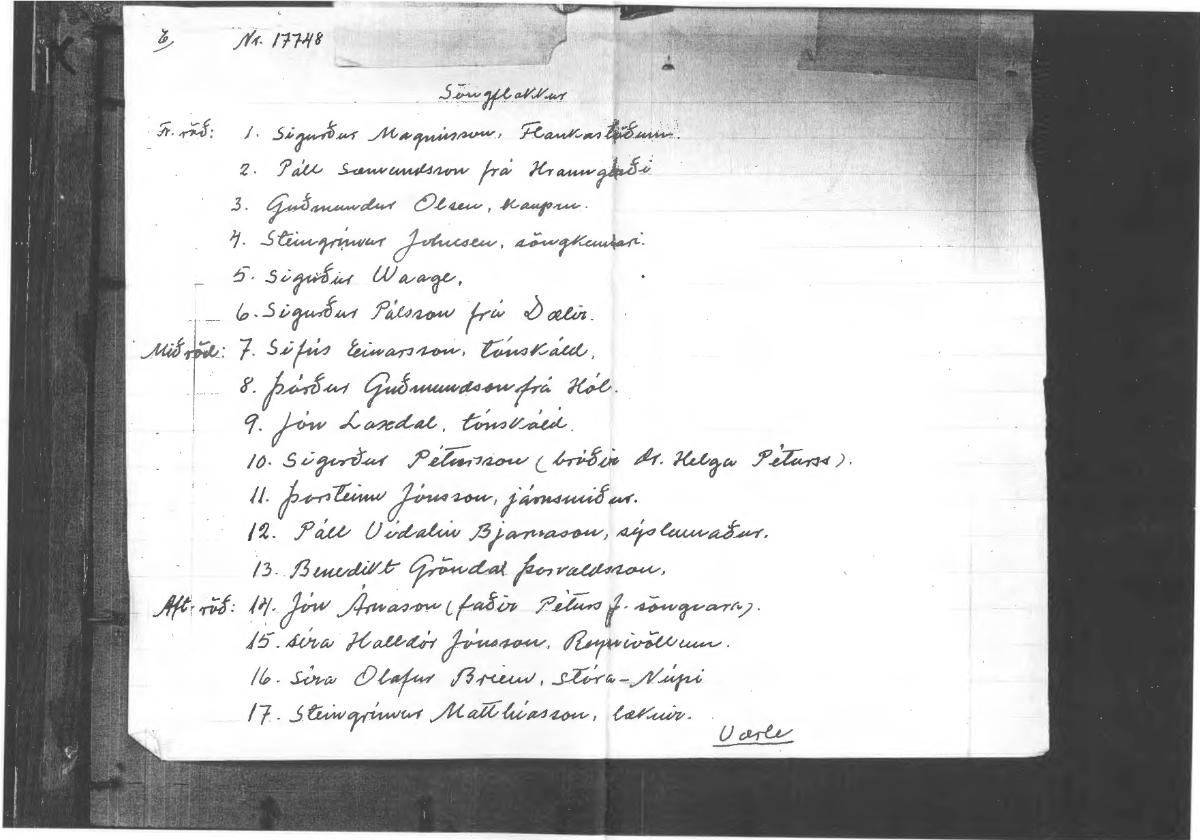 Nr. 17748
Söngflokkur
Fr. röð: 1. Sigurður Magnússon, Flankastöðum.
2. Páll Sæmundsson frá Hraungerði
3. Guðmundur Olsen, kaupm.
4. Steingrímur Johnsen, söngkennari.
5. Sigurður Waage,
6. Sigurður Pálsson frá Dælir.
Mið röð: 7. Sifús Einarsson, tónskáld,
8. Þórður Guðmundson frá Hól.
9. Jón Laxdal, tónskáld.
10. Sigurður Pétursson (bróðir dr. Helga Péturss).
11. Þorsteinn Jónsson, járnsmiður.
12. Páll Vídalín Bjarnason, sýslumaður.
13. Benedikt Gröndal Þorvaldsson,
Aft. röð: 14. Jón Árnason (faðir Péturs J. söngvara).
15. síra Halldór Jónsson, Reynivöllum.
16. síra Olafur Briem, stóra-Núpi
17. Steingrímur Matthíasson, læknir.